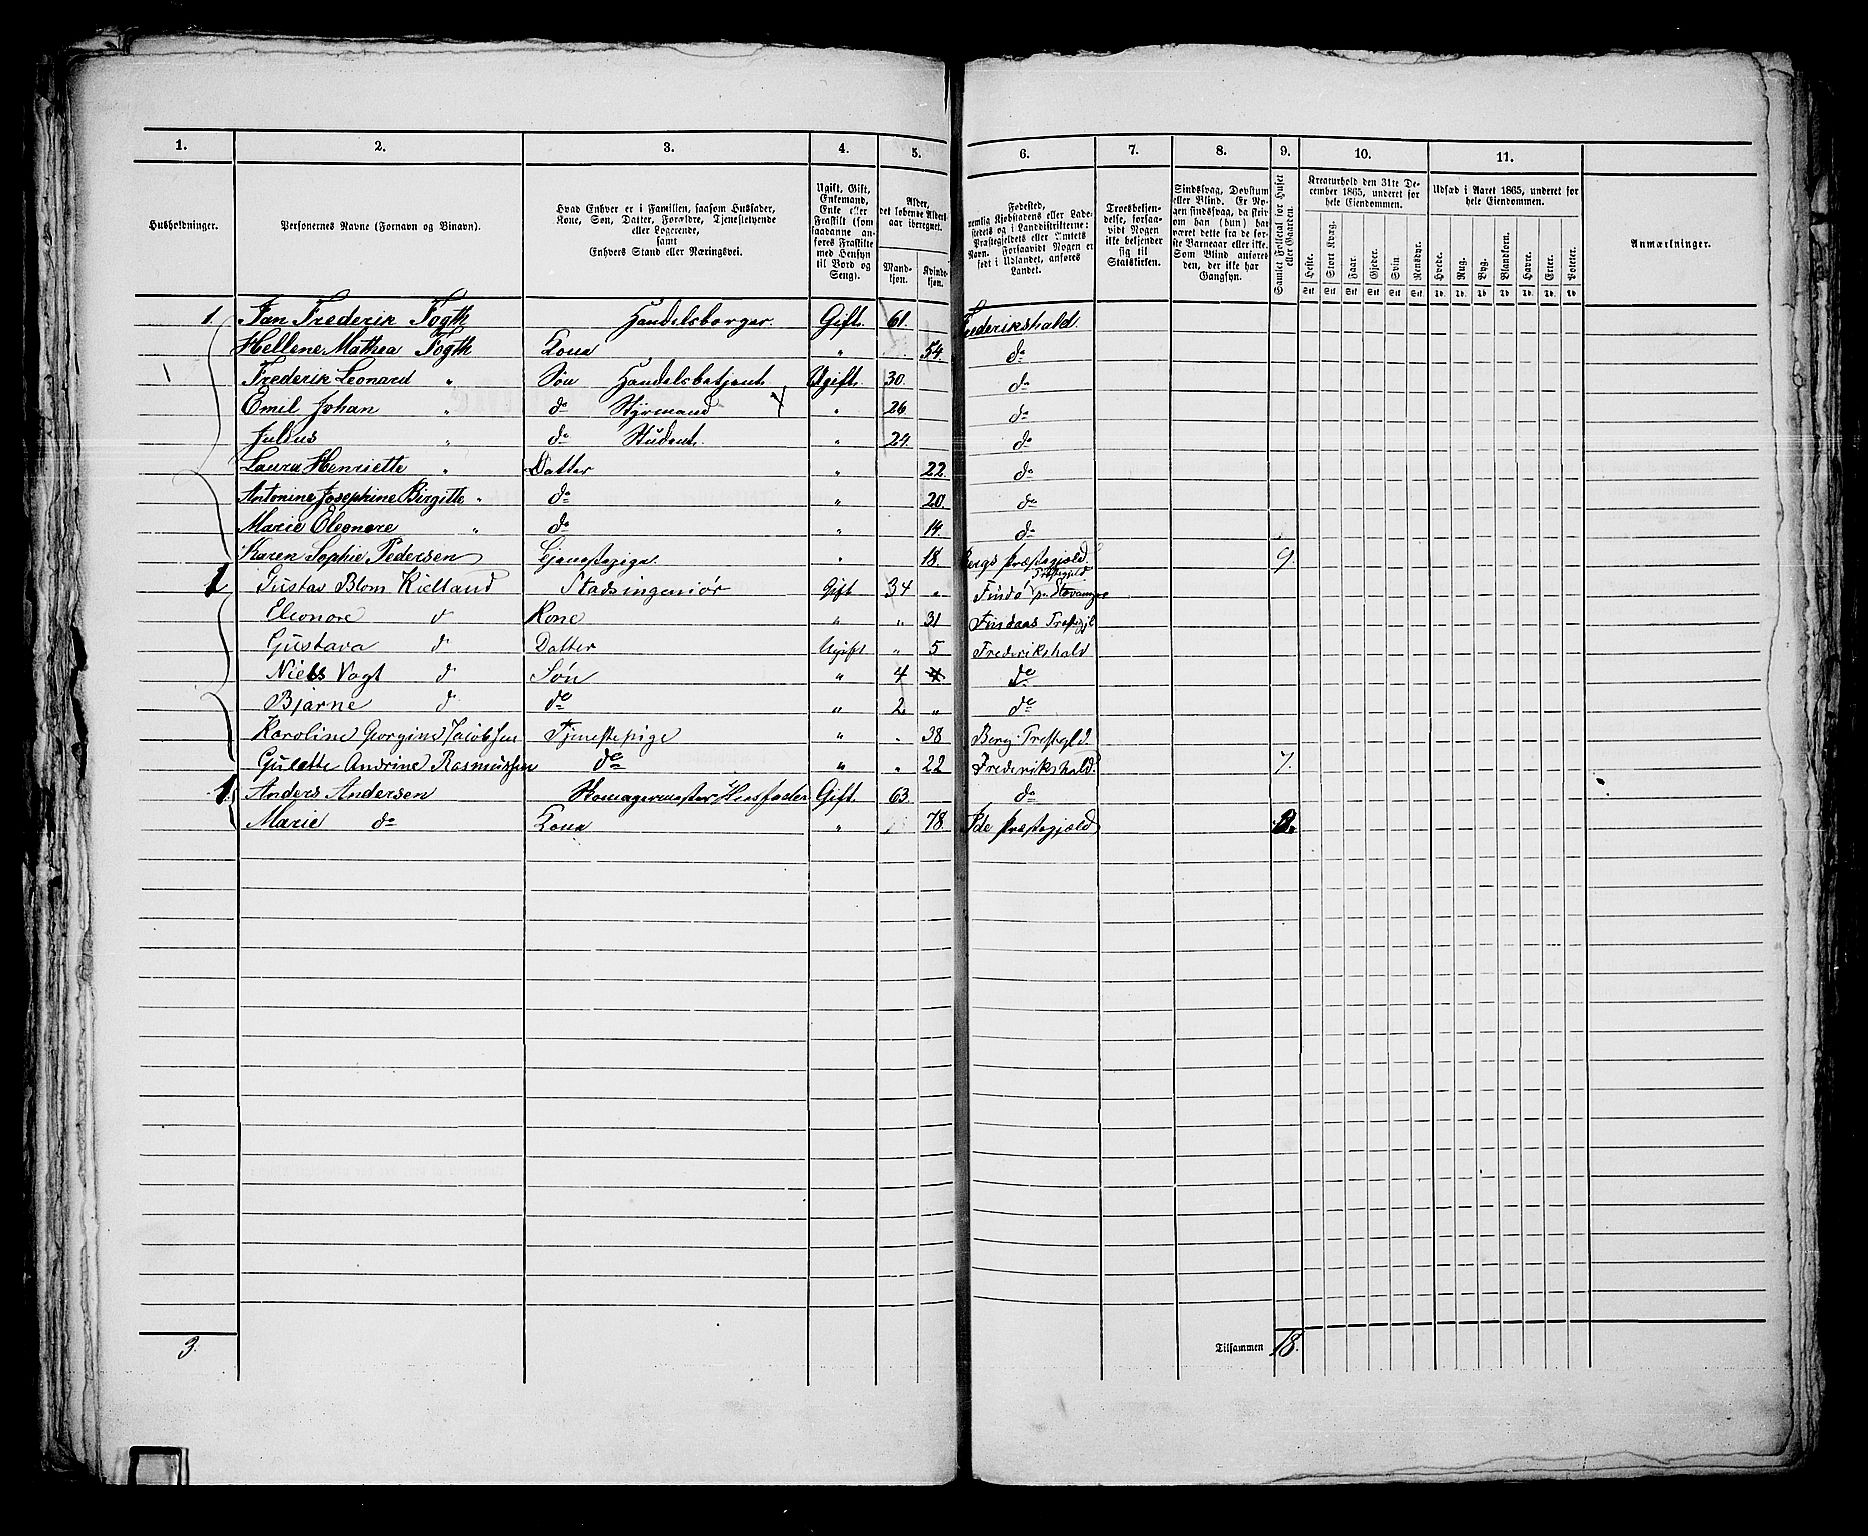 1. 2. 3. 4. 5. 6. 7. 8. 9. 10. 11.
Husholdninger.
Personernes Navne (Fornavn og Binavn).
Hvad Enhver er i Familien, saasom Husfader, Kone, Søn, Datter, Forældre, Tjenestetyende eller Logerende, samt Enhvers Stand eller Næringsvei.
Ugift, Gift, Enkemand, Enke eller Fraskilt (som saadanne anføres Fraskilte med Hensyn til Bord og Seng).
Alder, det løbende Alders-aar iberegnet.
Mand-kjøn. Kvinde-kjøn.
Fødested, nemlig Kjøbstadens eller Lade-stedets og i Landdistrikterne: Præstegjeldets eller Amtets Navn. Forsaavidt Nogen er født i Udlandet, anføres Landet.
Troesbekjen-delse, forsaa-vidt Nogen ikke bekjender sig til Statskirken.
Sindssvag, Døvstum eller Blind. Er No-gen sindssvag, da skriv om han (hun) har været dette fra de før-ste Barneaar eller ikke. Som Blind anføres den, der ikke har Gangsyn.
Samlet Folketal for Huset eller Gaarden.
Kreaturhold den 31te De-cember 1865, underet for hele Eiendommen.
Heste. Stort Kvæg. Faar. Gjeder. Svin. Rensdyr.
Stk Stk Stk Stk Stk Stk
Udsæd i Aaret 1865, underet for hele Eiendommen.
Hvede. Rug. Byg. Blandkorn. Havre. Erter. Poteter.
Td. Td. Td Td Td Td Td
Anmærkninger.
1. Jan Frederik Fogth Handelsborger. Gift. 61. Frederikshald.
Hellene Mathea Fogth Kone " 54. do
1 Frederik Leonard " Søn Handelsbetjent Ugift. 30. do
Emil Johan " do Styrmand " 26. do
Julius " do Student. " 24. do
Laura Henriette " Datter " 22. do
Antonine Josephine Birgitte " do " 20. do
Marie Eleonore " do " 14. do
Karen Sophie Pedersen Tjenestepige. " 18. Bergs Præstegjæld 9.
1 Gustav Blom Kielland Stadsingeniør Gift 34 " Findø Præstegjeld pr Stavanger
Eleonore d Kone " " 31 Præstegj
Gustava d Datter Ugift " 5 Frederikshald
Niels Vogt d Søn " 4 4 do
Bjarne d do " 2 " do
Karoline Georgine Jacobsen Tjenestepige " " 38 Berg Prestegjld.
Gulette Andrine Rasmussen do " " 22 Frederikshald. 7.
1. Anders Andersen Skomagermester, Huusfader Gift. 63. do
Marie do Kone " 78. Ide Præstegjæld 2.
3. Tilsammen 18.